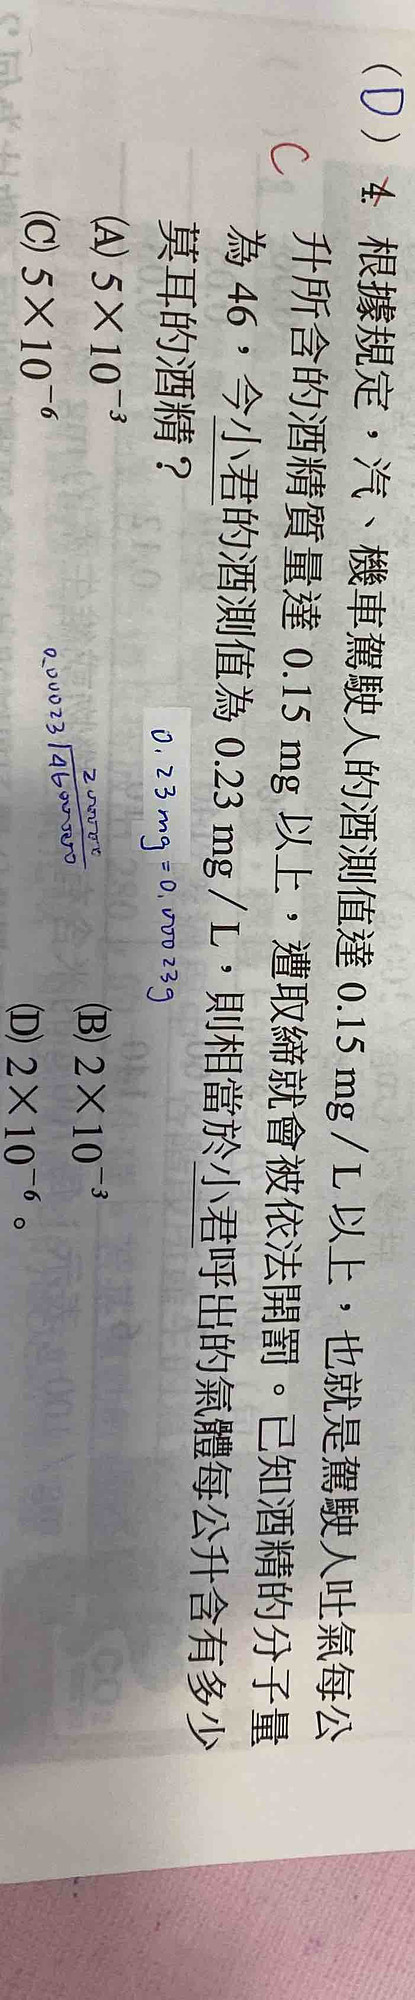 (D) 4. 根據規定，汽、機車駕駛人的酒測值達 0.15 mg／L 以上，也就是駕駛人吐氣每公
C 升所含的酒精質量達 0.15 mg 以上，遭取締就會被依法開罰。已知酒精的分子量
為 46，今小君的酒測值為 0.23 mg／L，則相當於小君呼出的氣體每公升含有多少
莫耳的酒精？
0.23mg=0.00023g
(A) 5×10⁻³ (B) 2×10⁻³
(C) 5×10⁻⁶ (D) 2×10⁻⁶。